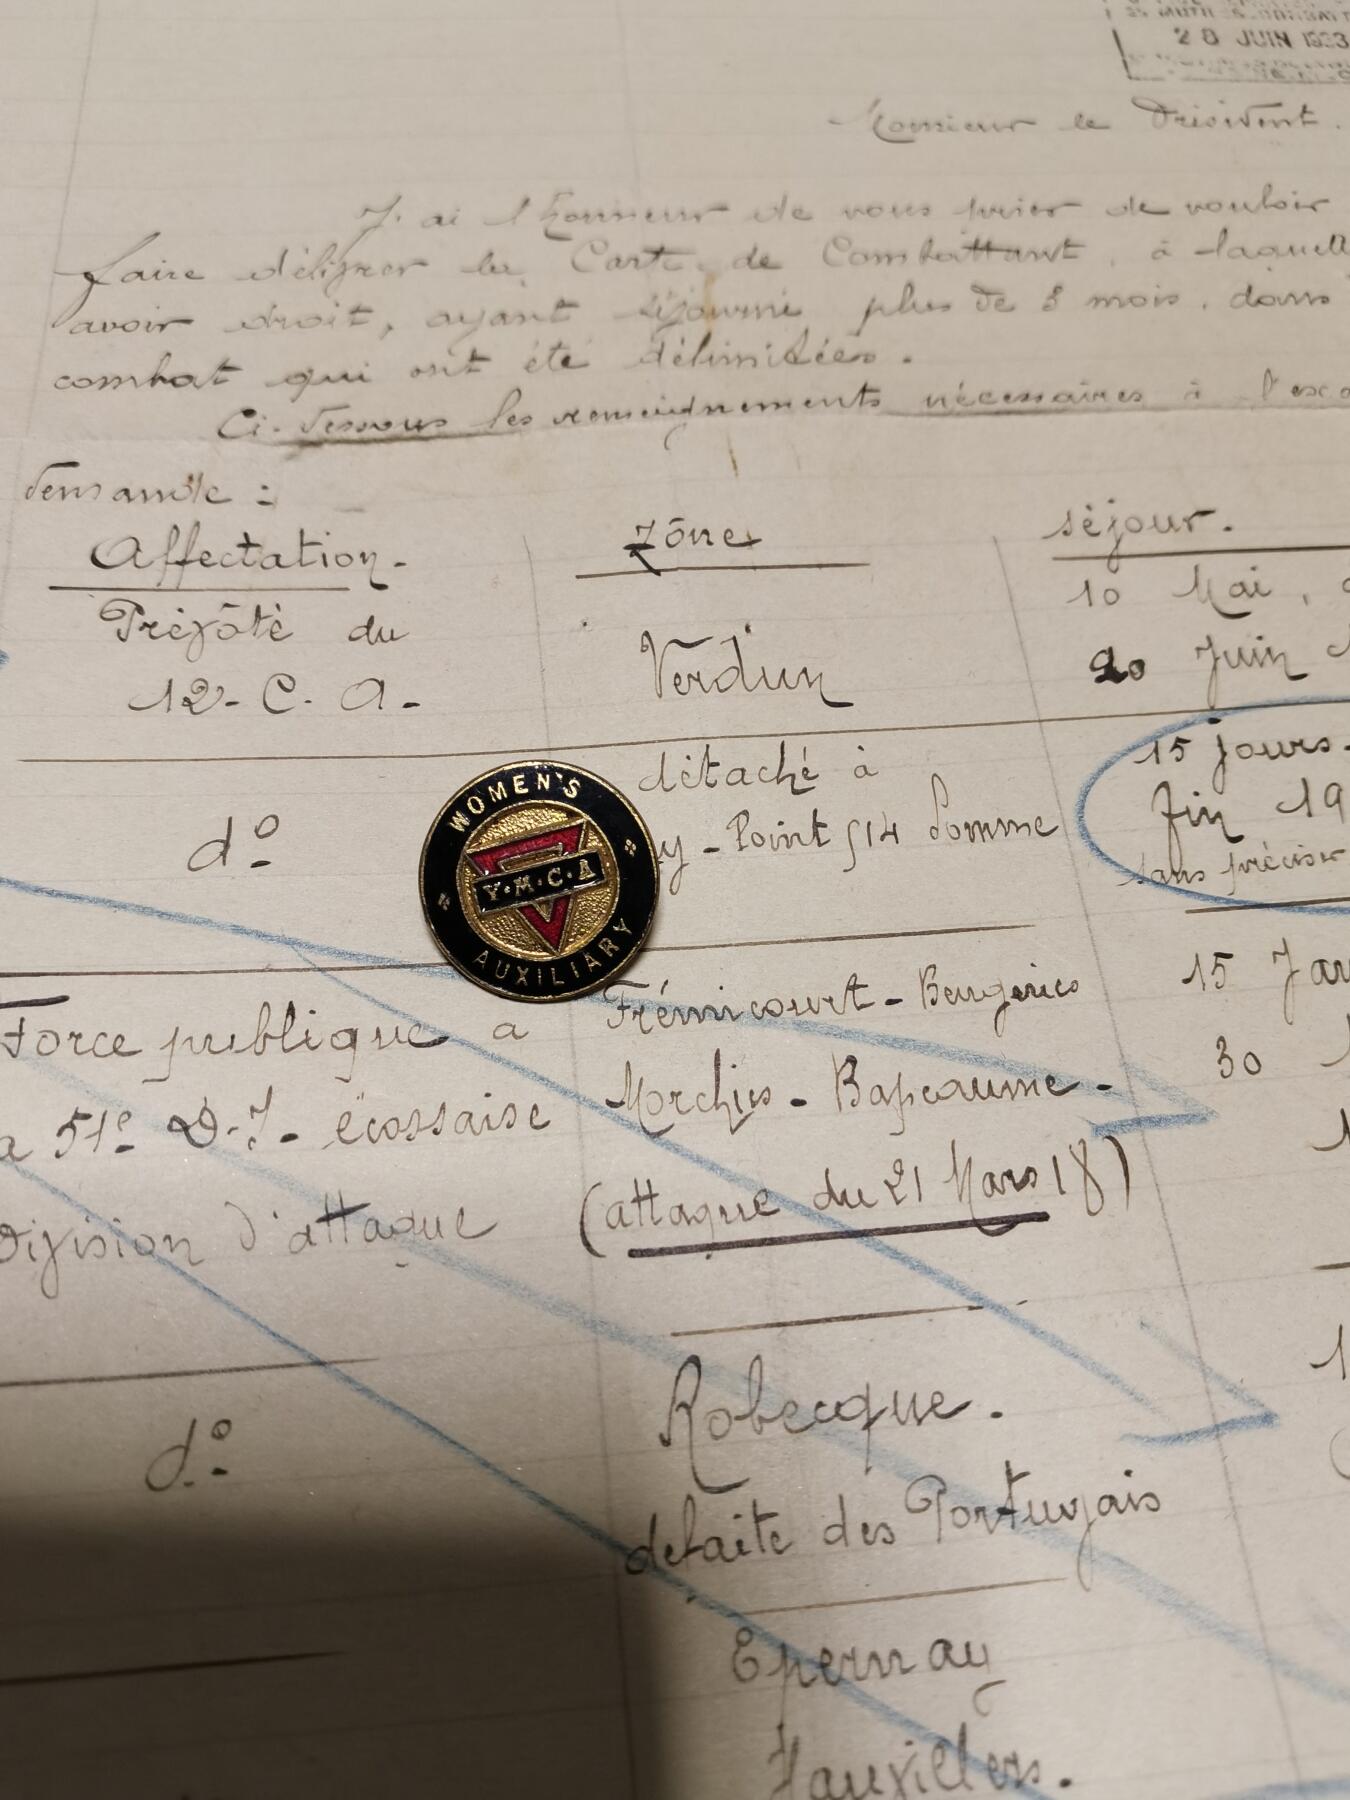 28 JUIN 1933
Monsieur le Président.
J'ai l'honneur de vous prier de vouloir
faire délivrer la Carte de Combattant, à laquelle
avoir droit, ayant séjourné plus de 3 mois, dans
combat qui ont été délimitées.
Ci-dessous les renseignements nécessaires à l'
demande :
Affectation.
Zône
séjour.
Prévôté du
12. C. A.
Verdun
10 Mai,
20 Juin
d°
détaché à
y - Point 514 Somme
15 jours.
fin 19
sans préciser
WOMEN'S
Y·M·C·A
AUXILIARY
Force publique à
a 51e D.I. écossaise
Division d'attaque
Frémicourt - Beugnies
Morchies - Bapeaume -
(attaque du 21 Mars 18)
15 Jan
30
d°
Robecque.
défaite des Portugais
Epernay
Hauvillers.